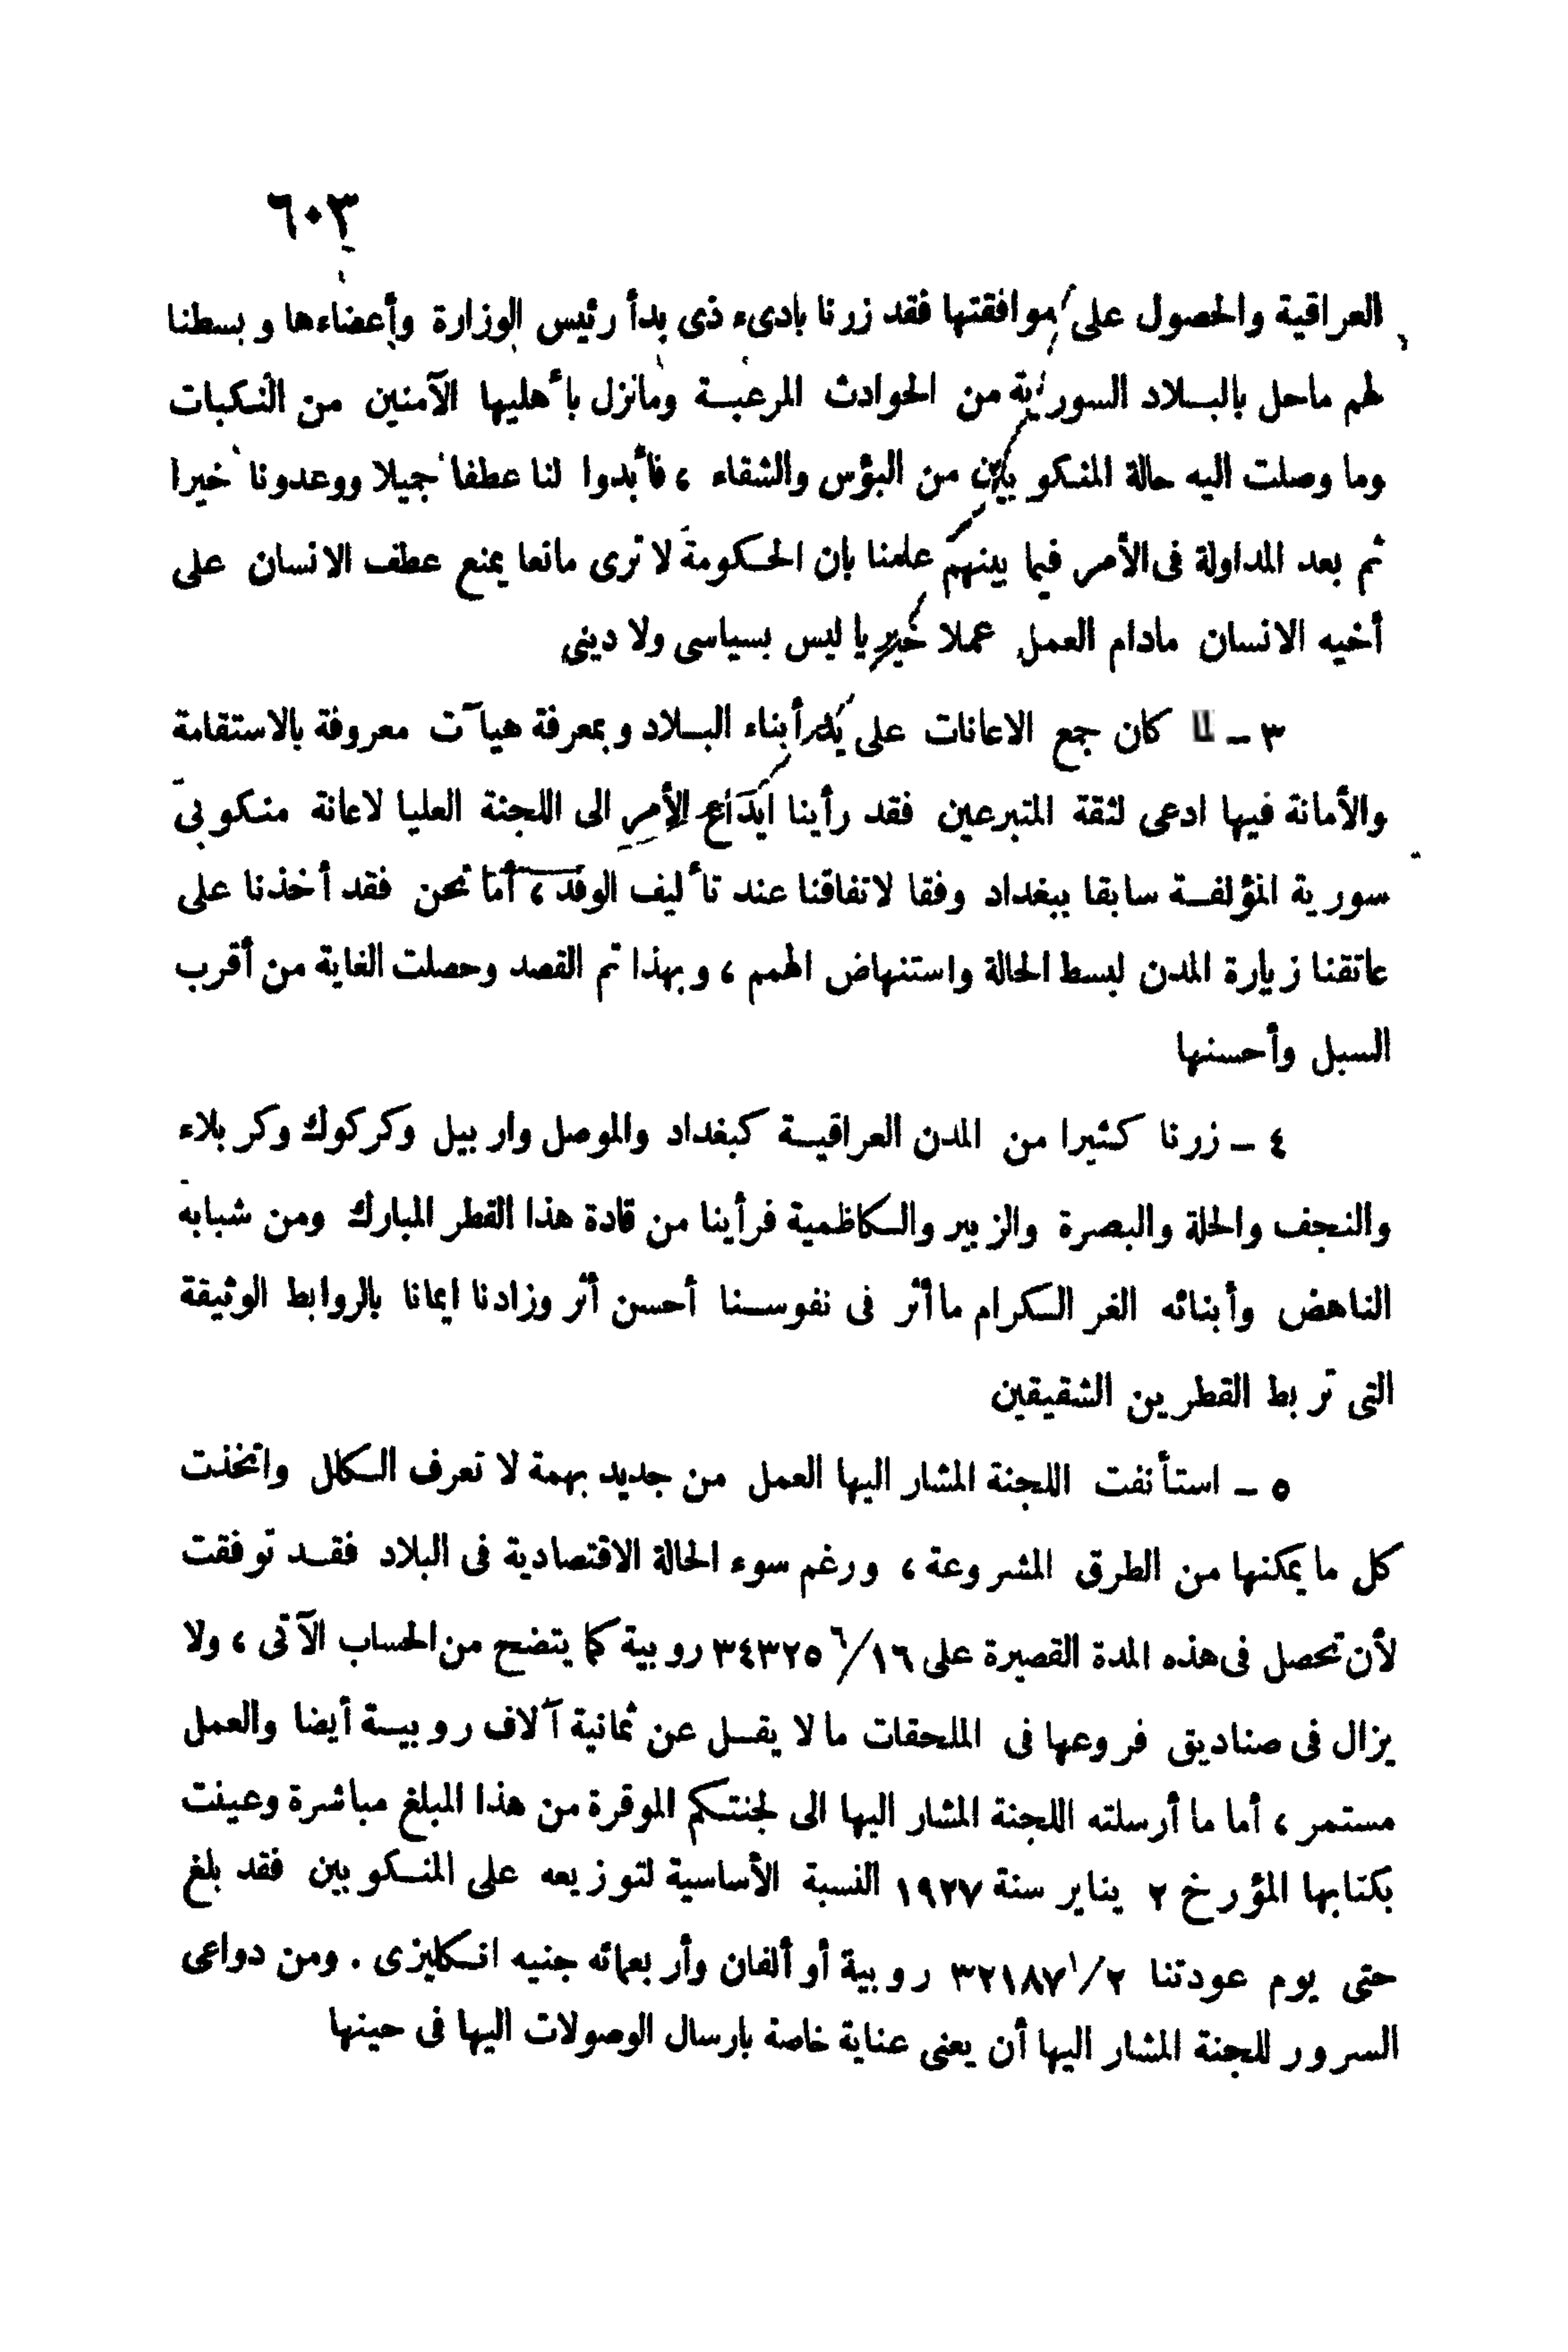 ٦٠٣
العراقية والحصول على موافقتها فقد زرنا بادىء ذى بدأ رئيس الوزارة وأعضاءها وبسطنا
لهم ماحل بالبلاد السورية من الحوادث المرعبة ومانزل بأهليها الآمنين من النكبات
وما وصلت اليه حالة المنكوبين من البؤس والشقاء ، فأبدوا لنا عطفا جميلا ووعدونا خيرا
ثم بعد المداولة فى الأمر فيما بينهم علمنا بان الحكومة لا ترى مانعا يمنع عطف الانسان على
أخيه الانسان مادام العمل عملا خيريا ليس بسياسى ولا دينى
٣ - لما كان جمع الاعانات على يد أبناء البلاد وبمعرفة هيآت معروفة بالاستقامة
والأمانة فيها ادعى لثقة المتبرعين فقد رأينا ايداع الأمر الى اللجنة العليا لاعانة منكوبى
سورية المؤلفة سابقا ببغداد وفقا لاتفاقنا عند تأليف الوفد ، أما نحن فقد أخذنا على
عاتقنا زيارة المدن لبسط الحالة واستنهاض الهمم ، وبهذا تم القصد وحصلت الغاية من أقرب
السبل وأحسنها
٤ - زرنا كثيرا من المدن العراقية كبغداد والموصل واربيل وكركوك وكربلاء
والنجف والحلة والبصرة والزبير والكاظمية فرأينا من قادة هذا القطر المبارك ومن شبابه
الناهض وأبنائه الغر الكرام ما أثر فى نفوسنا أحسن أثر وزادنا ايمانا بالروابط الوثيقة
التى تربط القطرين الشقيقين
٥ - استأنفت اللجنة المشار اليها العمل من جديد بهمة لا تعرف الكلل واتخذت
كل ما يمكنها من الطرق المشروعة ، ورغم سوء الحالة الاقتصادية فى البلاد فقد توفقت
لأن تحصل فى هذه المدة القصيرة على ٣٤٣٢٥ ٦/١٦ روبية كما يتضح من الحساب الآتى ، ولا
يزال فى صناديق فروعها فى الملحقات ما لا يقل عن ثمانية آلاف روبية أيضا والعمل
مستمر ، أما ما أرسلته اللجنة المشار اليها الى لجنتكم الموقرة من هذا المبلغ مباشرة وعينت
بكتابها المؤرخ ٢ يناير سنة ١٩٢٧ النسبة الأساسية لتوزيعه على المنكوبين فقد بلغ
حتى يوم عودتنا ٣٢١٨٧ ١/٢ روبية أو ألفان وأربعمائه جنيه انكليزى . ومن دواعى
السرور للجنة المشار اليها أن يعنى عناية خاصة بارسال الوصولات اليها فى حينها